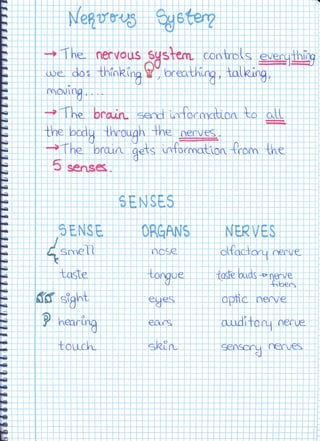 Nervous System
→ The nervous system controls everything
we do: thinking, breathing, talking,
moving....
→ The brain send information to all
the body through the nerves.
→ The brain gets information from the
5 senses.
SENSES
SENSE ORGANS NERVES
smell nose olfactory nerve
taste tongue taste buds → nerve
fibers
sight eyes optic nerve
hearing ears auditory nerve
touch skin sensory nerves